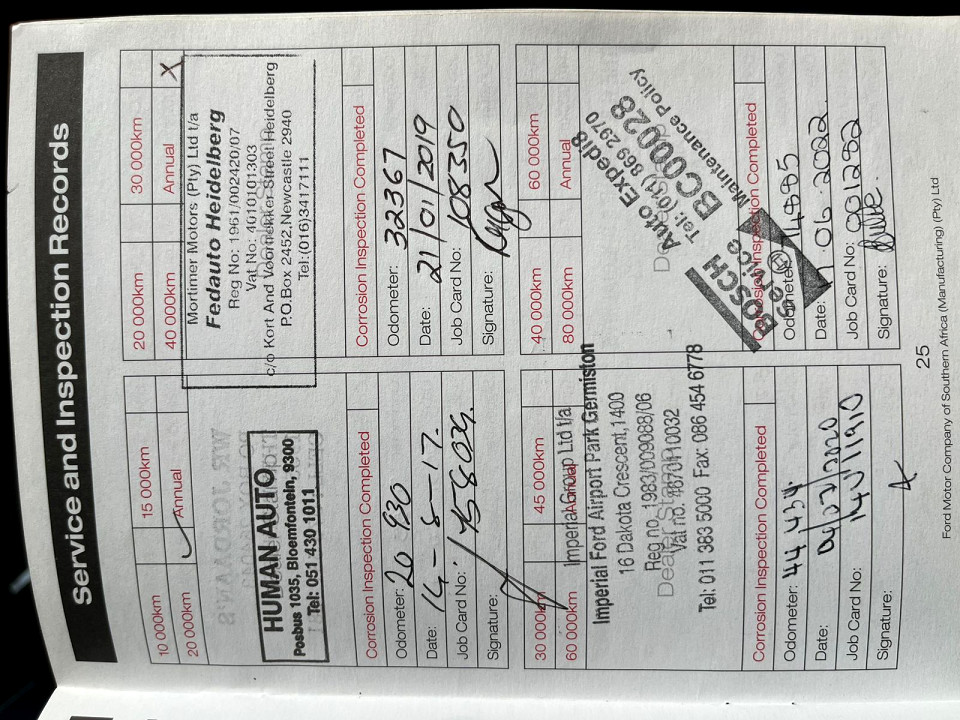 Service and Inspection Records
10 000km
15 000km
20 000km
Annual
HUMAN AUTO
Posbus 1035, Bloemfontein, 9300
Tel: 051 430 1011
Corrosion Inspection Completed
Odometer: 20 930
Date: 14 - 8 - 17.
Job Card No: 158039.
Signature:
20 000km
30 000km
40 000km
Annual X
Mortimer Motors (Pty) Ltd t/a
Fedauto Heidelberg
Reg No: 1961/002420/07
Vat No: 4010101303
c/o Kort And Voortrekker Street Heidelberg
P.O.Box 2452, Newcastle 2940
Tel:(016)3417111
Corrosion Inspection Completed
Odometer: 32367
Date: 21/01/2019
Job Card No: 108350
Signature:
30 000km
45 000km
60 000km
Annual
Imperial Group Ltd t/a
Imperial Ford Airport Park Germiston
16 Dakota Crescent, 1400
Reg no. 1983/009088/06
Dealer Stamp
Vat no. 4670110032
Tel: 011 383 5000 Fax: 086 454 6778
Corrosion Inspection Completed
Odometer: 44 434
Date: 04/02/2020
Job Card No:
Signature:
40 000km
60 000km
80 000km
Annual
Auto Expedi8
Tel: (011) 869 2970
BC000028
Maintenance Policy
BOSCH
Service
Corrosion Inspection Completed
Odometer: 74885
Date: 06.2022
Job Card No: 001292
Signature:
25
Ford Motor Company of Southern Africa (Manufacturing) (Pty) Ltd